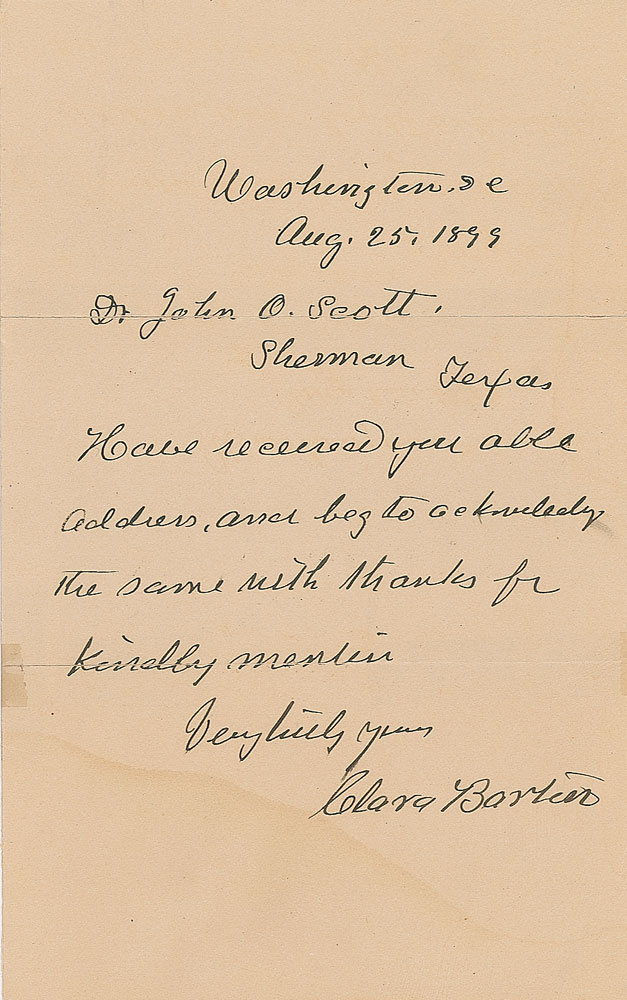 Washington. D C
Aug. 25, 1899
Dr John O. Scott,
Sherman Texas
Have received your able
address, and beg to acknowledge
the same with thanks for
kindly mention
Very truly yours
Clara Barton